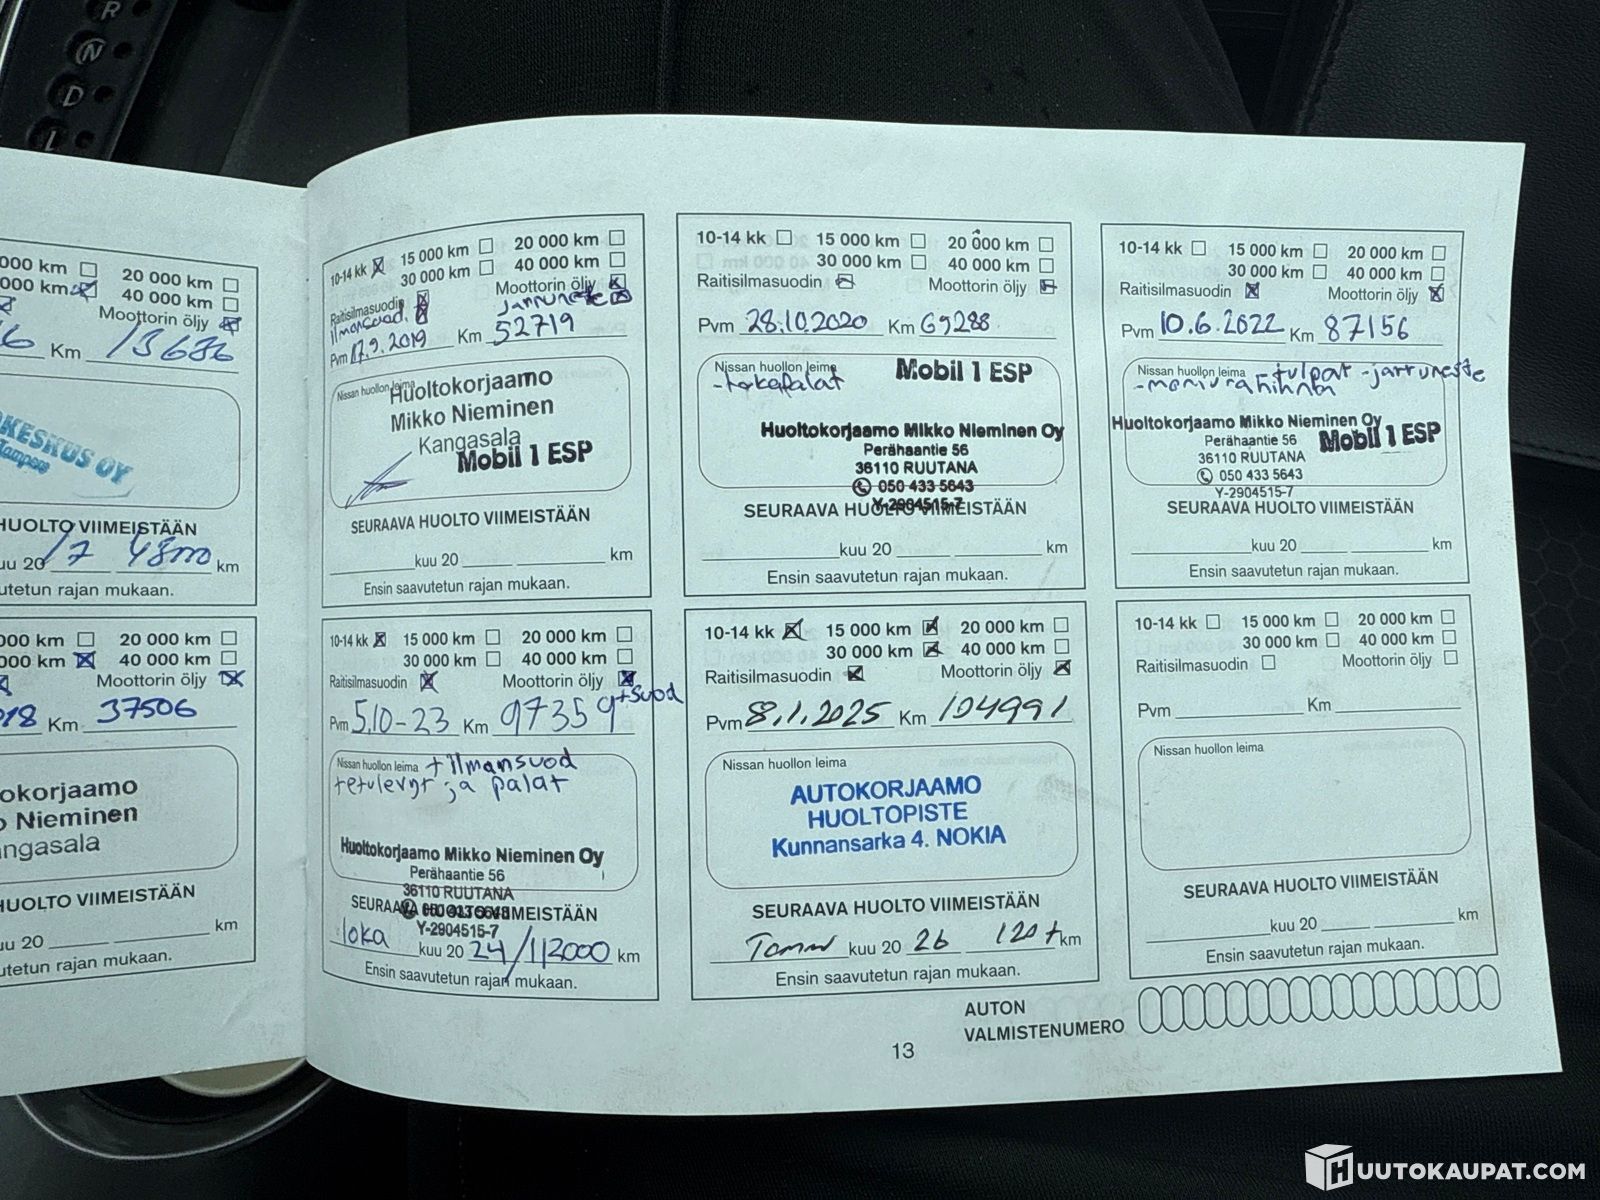 R
N
D
L
000 km ☐ 20 000 km ☐
000 km ☒ 40 000 km ☐
Moottorin öljy ☒
6 Km 13686
KESKUS OY
Tampere
HUOLTO VIIMEISTÄÄN
uu 20 17 48000 km
utetun rajan mukaan.
000 km ☐ 20 000 km ☐
000 km ☒ 40 000 km ☐
Moottorin öljy ☒
018 Km 37506
okorjaamo
o Nieminen
ngasala
HUOLTO VIIMEISTÄÄN
uu 20 km
utetun rajan mukaan.
10-14 kk ☒ 15 000 km ☐ 20 000 km ☐
30 000 km ☐ 40 000 km ☐
Raitisilmasuodin ☒ Moottorin öljy ☒
ilmansuod. ☒ jarruneste ☒
Pvm 17.9.2019 Km 52719
Nissan huollon leima
Huoltokorjaamo
Mikko Nieminen
Kangasala
Mobil 1 ESP
SEURAAVA HUOLTO VIIMEISTÄÄN
kuu 20 km
Ensin saavutetun rajan mukaan.
10-14 kk ☐ 15 000 km ☐ 20 000 km ☐
30 000 km ☐ 40 000 km ☐
Raitisilmasuodin ☒ Moottorin öljy ☒
Pvm 28.10.2020 Km 69288
Nissan huollon leima Mobil 1 ESP
-takapalat
Huoltokorjaamo Mikko Nieminen Oy
Perähaantie 56
36110 RUUTANA
050 433 5643
Y-2904515-7
SEURAAVA HUOLTO VIIMEISTÄÄN
kuu 20 km
Ensin saavutetun rajan mukaan.
10-14 kk ☐ 15 000 km ☐ 20 000 km ☐
30 000 km ☐ 40 000 km ☐
Raitisilmasuodin ☒ Moottorin öljy ☒
Pvm 10.6.2022 Km 87156
Nissan huollon leima -tulpat -jarruneste
-moniurahihna
Huoltokorjaamo Mikko Nieminen Oy
Perähaantie 56 Mobil 1 ESP
36110 RUUTANA
050 433 5643
Y-2904515-7
SEURAAVA HUOLTO VIIMEISTÄÄN
kuu 20 km
Ensin saavutetun rajan mukaan.
10-14 kk ☒ 15 000 km ☐ 20 000 km ☐
30 000 km ☐ 40 000 km ☐
Raitisilmasuodin ☒ Moottorin öljy ☒
+suod
Pvm 5.10-23 Km 97359
Nissan huollon leima +ilmansuod
+etulevyt ja palat
Huoltokorjaamo Mikko Nieminen Oy
Perähaantie 56
36110 RUUTANA
050 433 5643
SEURAAVA HUOLTO VIIMEISTÄÄN
Y-2904515-7
loka kuu 20 24/112000 km
Ensin saavutetun rajan mukaan.
10-14 kk ☒ 15 000 km ☒ 20 000 km ☐
30 000 km ☒ 40 000 km ☐
Raitisilmasuodin ☒ Moottorin öljy ☒
Pvm 8.1.2025 Km 104991
Nissan huollon leima
AUTOKORJAAMO
HUOLTOPISTE
Kunnansarka 4. NOKIA
SEURAAVA HUOLTO VIIMEISTÄÄN
Tammi kuu 20 26 120t km
Ensin saavutetun rajan mukaan.
10-14 kk ☐ 15 000 km ☐ 20 000 km ☐
30 000 km ☐ 40 000 km ☐
Raitisilmasuodin ☐ Moottorin öljy ☐
Pvm Km
Nissan huollon leima
SEURAAVA HUOLTO VIIMEISTÄÄN
kuu 20 km
Ensin saavutetun rajan mukaan.
AUTON
VALMISTENUMERO
13
HUUTOKAUPAT.COM